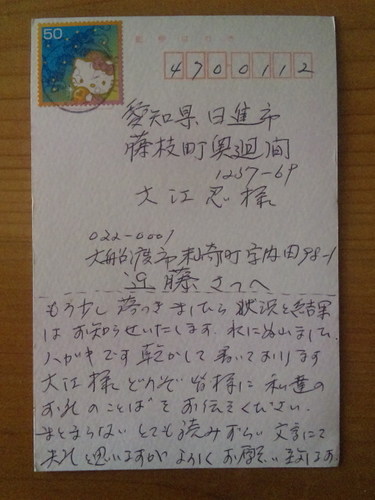 50
郵便はがき
4700112
愛知県日進市
藤枝町奥廻間
1257-69
大江忍様
022-0001
大船渡市末崎町字内田98-1
近藤さつへ
もう少し落つきましたら状況と結果
はお知らせいたします。水にぬれまして、
ハガキです乾かして書いております
大江様どうぞ皆様に私達の
お礼のことばをお伝えください。
まとまらないとても読みずらい文字にて
失礼と思いますがよろしくお願い致します。